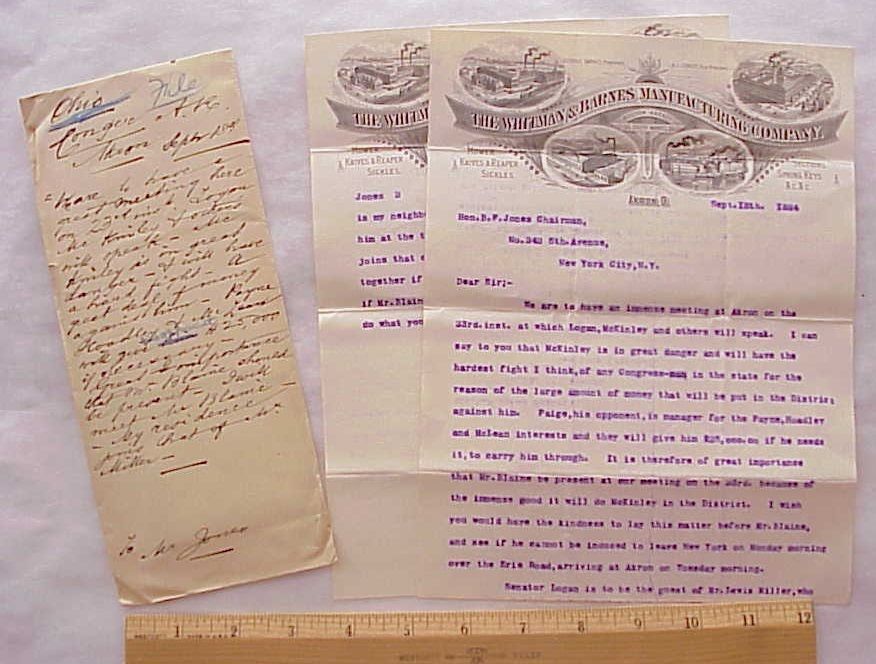 Ohio
Conger A. L.
Akron Sept 15th
Have to have a
great meeting here
on 23d inst.
McKinley & others
will speak - Mc
Kinley is in great
danger - & will have
a hard fight - A
great deal of money
against him - Payne
Hoadley & McLean
will give $25,000
if necessary -
Great importance
that Mr. Blaine should
be present - I will
meet Mr Blaine -
- My residence
joins that of Mr
Miller -
To Mr Jones
THE WHITM
KNIVES & REAPER
SICKLES.
Jones B
is my neighb
him at the t
joins that o
together if
if Mr.Blain
do what you
THE WHITMAN & BARNES MANUFACTURING COMPANY.
KNIVES & REAPER
SICKLES.
SPRING KEYS
&c &c
AKRON O.
Sept.15th. 1884
Hon.B.F.Jones Chairman,
No.242 5th.Avenue,
New York City,N.Y.
Dear Sir;-
We are to have an immense meeting at Akron on the
23rd.inst. at which Logan,McKinley and others will speak. I can
say to you that McKinley is in great danger and will have the
hardest fight I think,of any Congress-man in the state for the
reason of the large amount of money that will be put in the District
against him. Paige,his opponent,is manager for the Payne,Hoadley
and McLean interests and they will give him $25,000.00 if he needs
it,to carry him through. It is therefore of great importance
that Mr.Blaine be present at our meeting on the 23rd. because of
the immense good it will do McKinley in the District. I wish
you would have the kindness to lay this matter before Mr.Blaine,
and see if he cannot be induced to leave New York on Monday morning
over the Erie Road,arriving at Akron on Tuesday morning.
Senator Logan is to be the guest of Mr.Lewis Miller,who
1 2 3 4 5 6 7 8 9 10 11 12